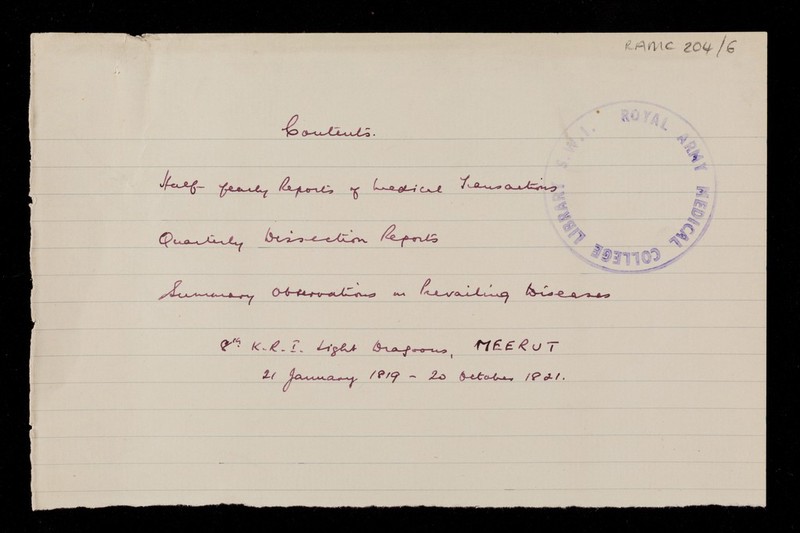 RAMC 204/6
Contents.
Half-yearly Reports of Medical Transactions
Quarterly Dissection Reports
Summary Observations on Prevailing Diseases
8th. K.R.I. Light Dragoons, MEERUT
21 January 1819 - 20 October 1821.
ROYAL ARMY MEDICAL COLLEGE LIBRARY S.W.1.